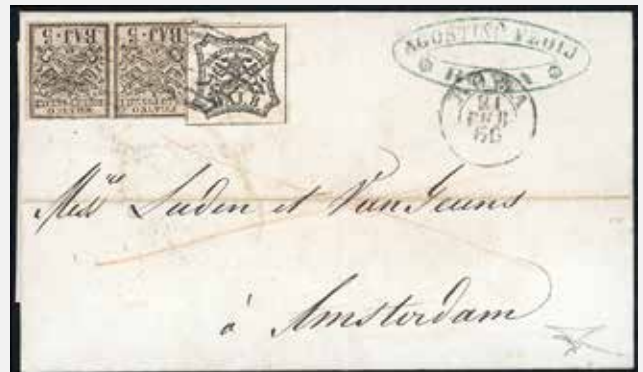 BAJ·5
BAJ·5
BAJ 8
AGOSTINO FEOLJ
ROMA
ROMA
21
FEB
66
Mess.rs Laden et Van Geuns
à Amsterdam